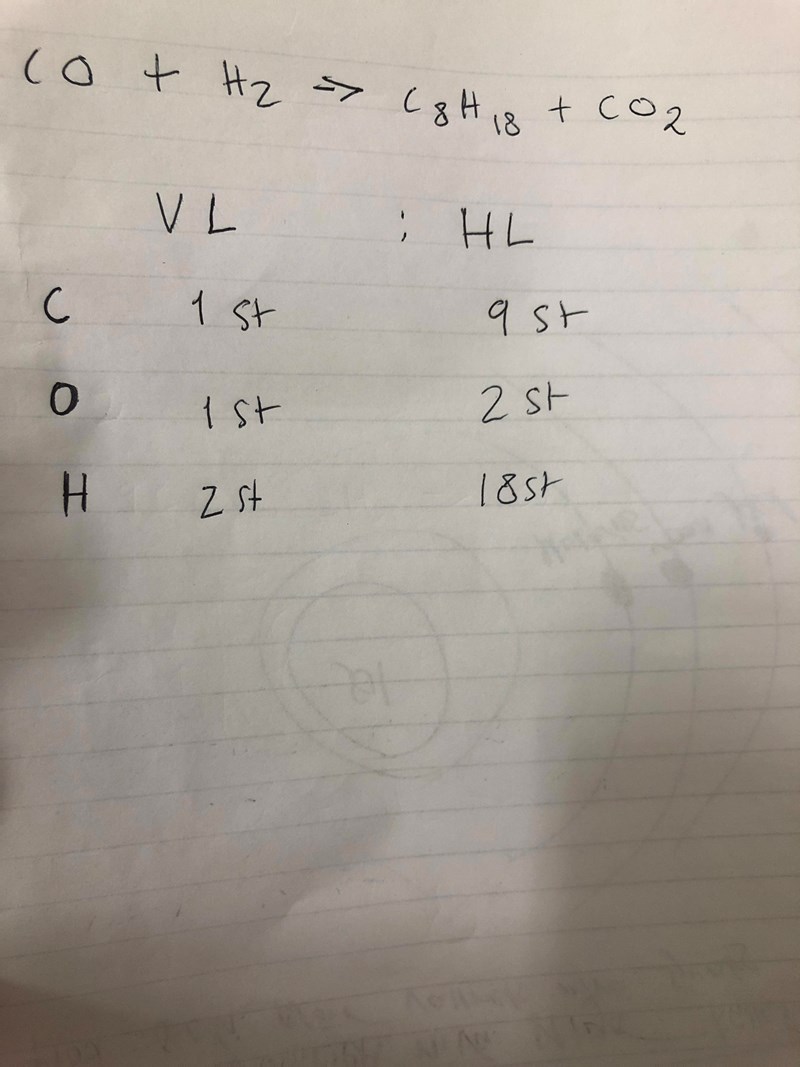 CO + H2 => C8H18 + CO2
VL ; HL
C 1 st 9 st
O 1 st 2 st
H 2 st 18 st